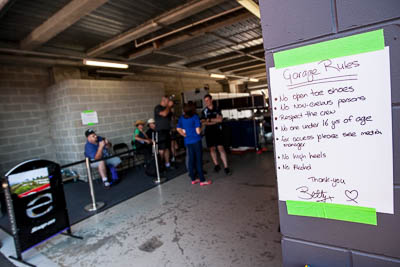 Garage Rules
• No open toe shoes
• No Non-serious persons
• Respect the crew
• No one under 16 yrs of age
for access please see media
manager
• No high heels
• No Alcohol
Thank-you
Betty